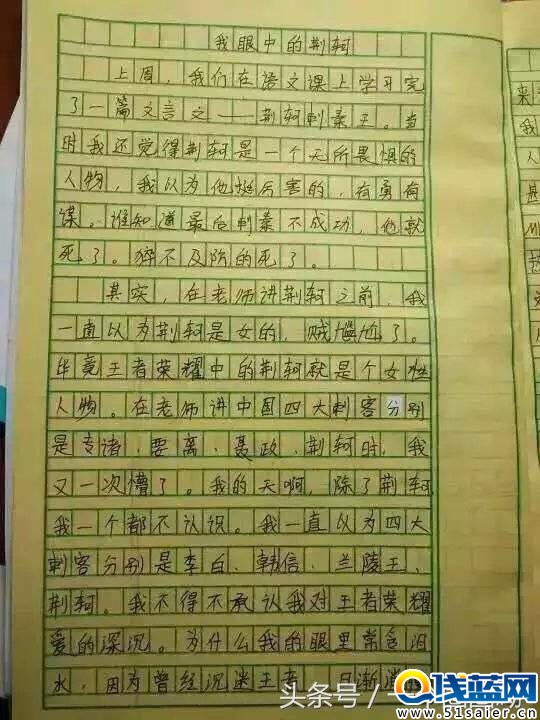 我眼中的荆轲
上周，我们在语文课上学习完
了一篇文言文——荆轲刺秦王。当
时我还觉得荆轲是一个无所畏惧的
人物，我认为他挺厉害的，有勇有
谋。谁知道最后刺秦不成功，他就
死了。猝不及防的死了。
其实，在老师讲荆轲之前，我
一直以为荆轲是女的，贼尴尬了。
毕竟王者荣耀中的荆轲就是个女性
人物。在老师讲中国四大刺客分别
是专诸，要离，聂政，荆轲时，我
又一次懵了。我的天啊，除了荆轲，
我一个都不认识。我一直以为四大
刺客分别是李白、韩信、兰陵王、
荆轲。我不得不承认我对王者荣耀
爱的深沉。为什么我的眼里常含泪
水，因为曾经沉迷王者，日渐消
来
我
人
是
头条号／一
栈蓝网
www.51saier.cn